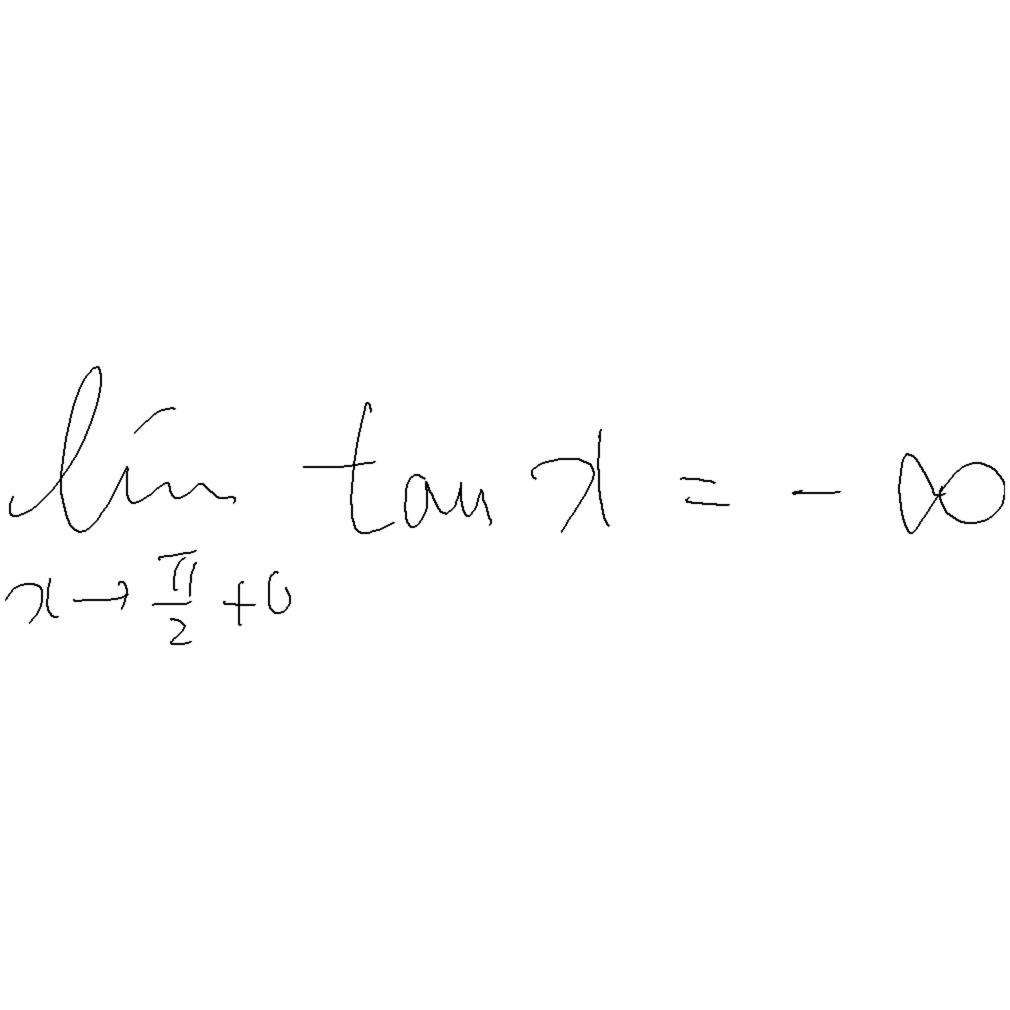 \lim_{x \to \frac{\pi}{2} + 0} \tan x = - \infty